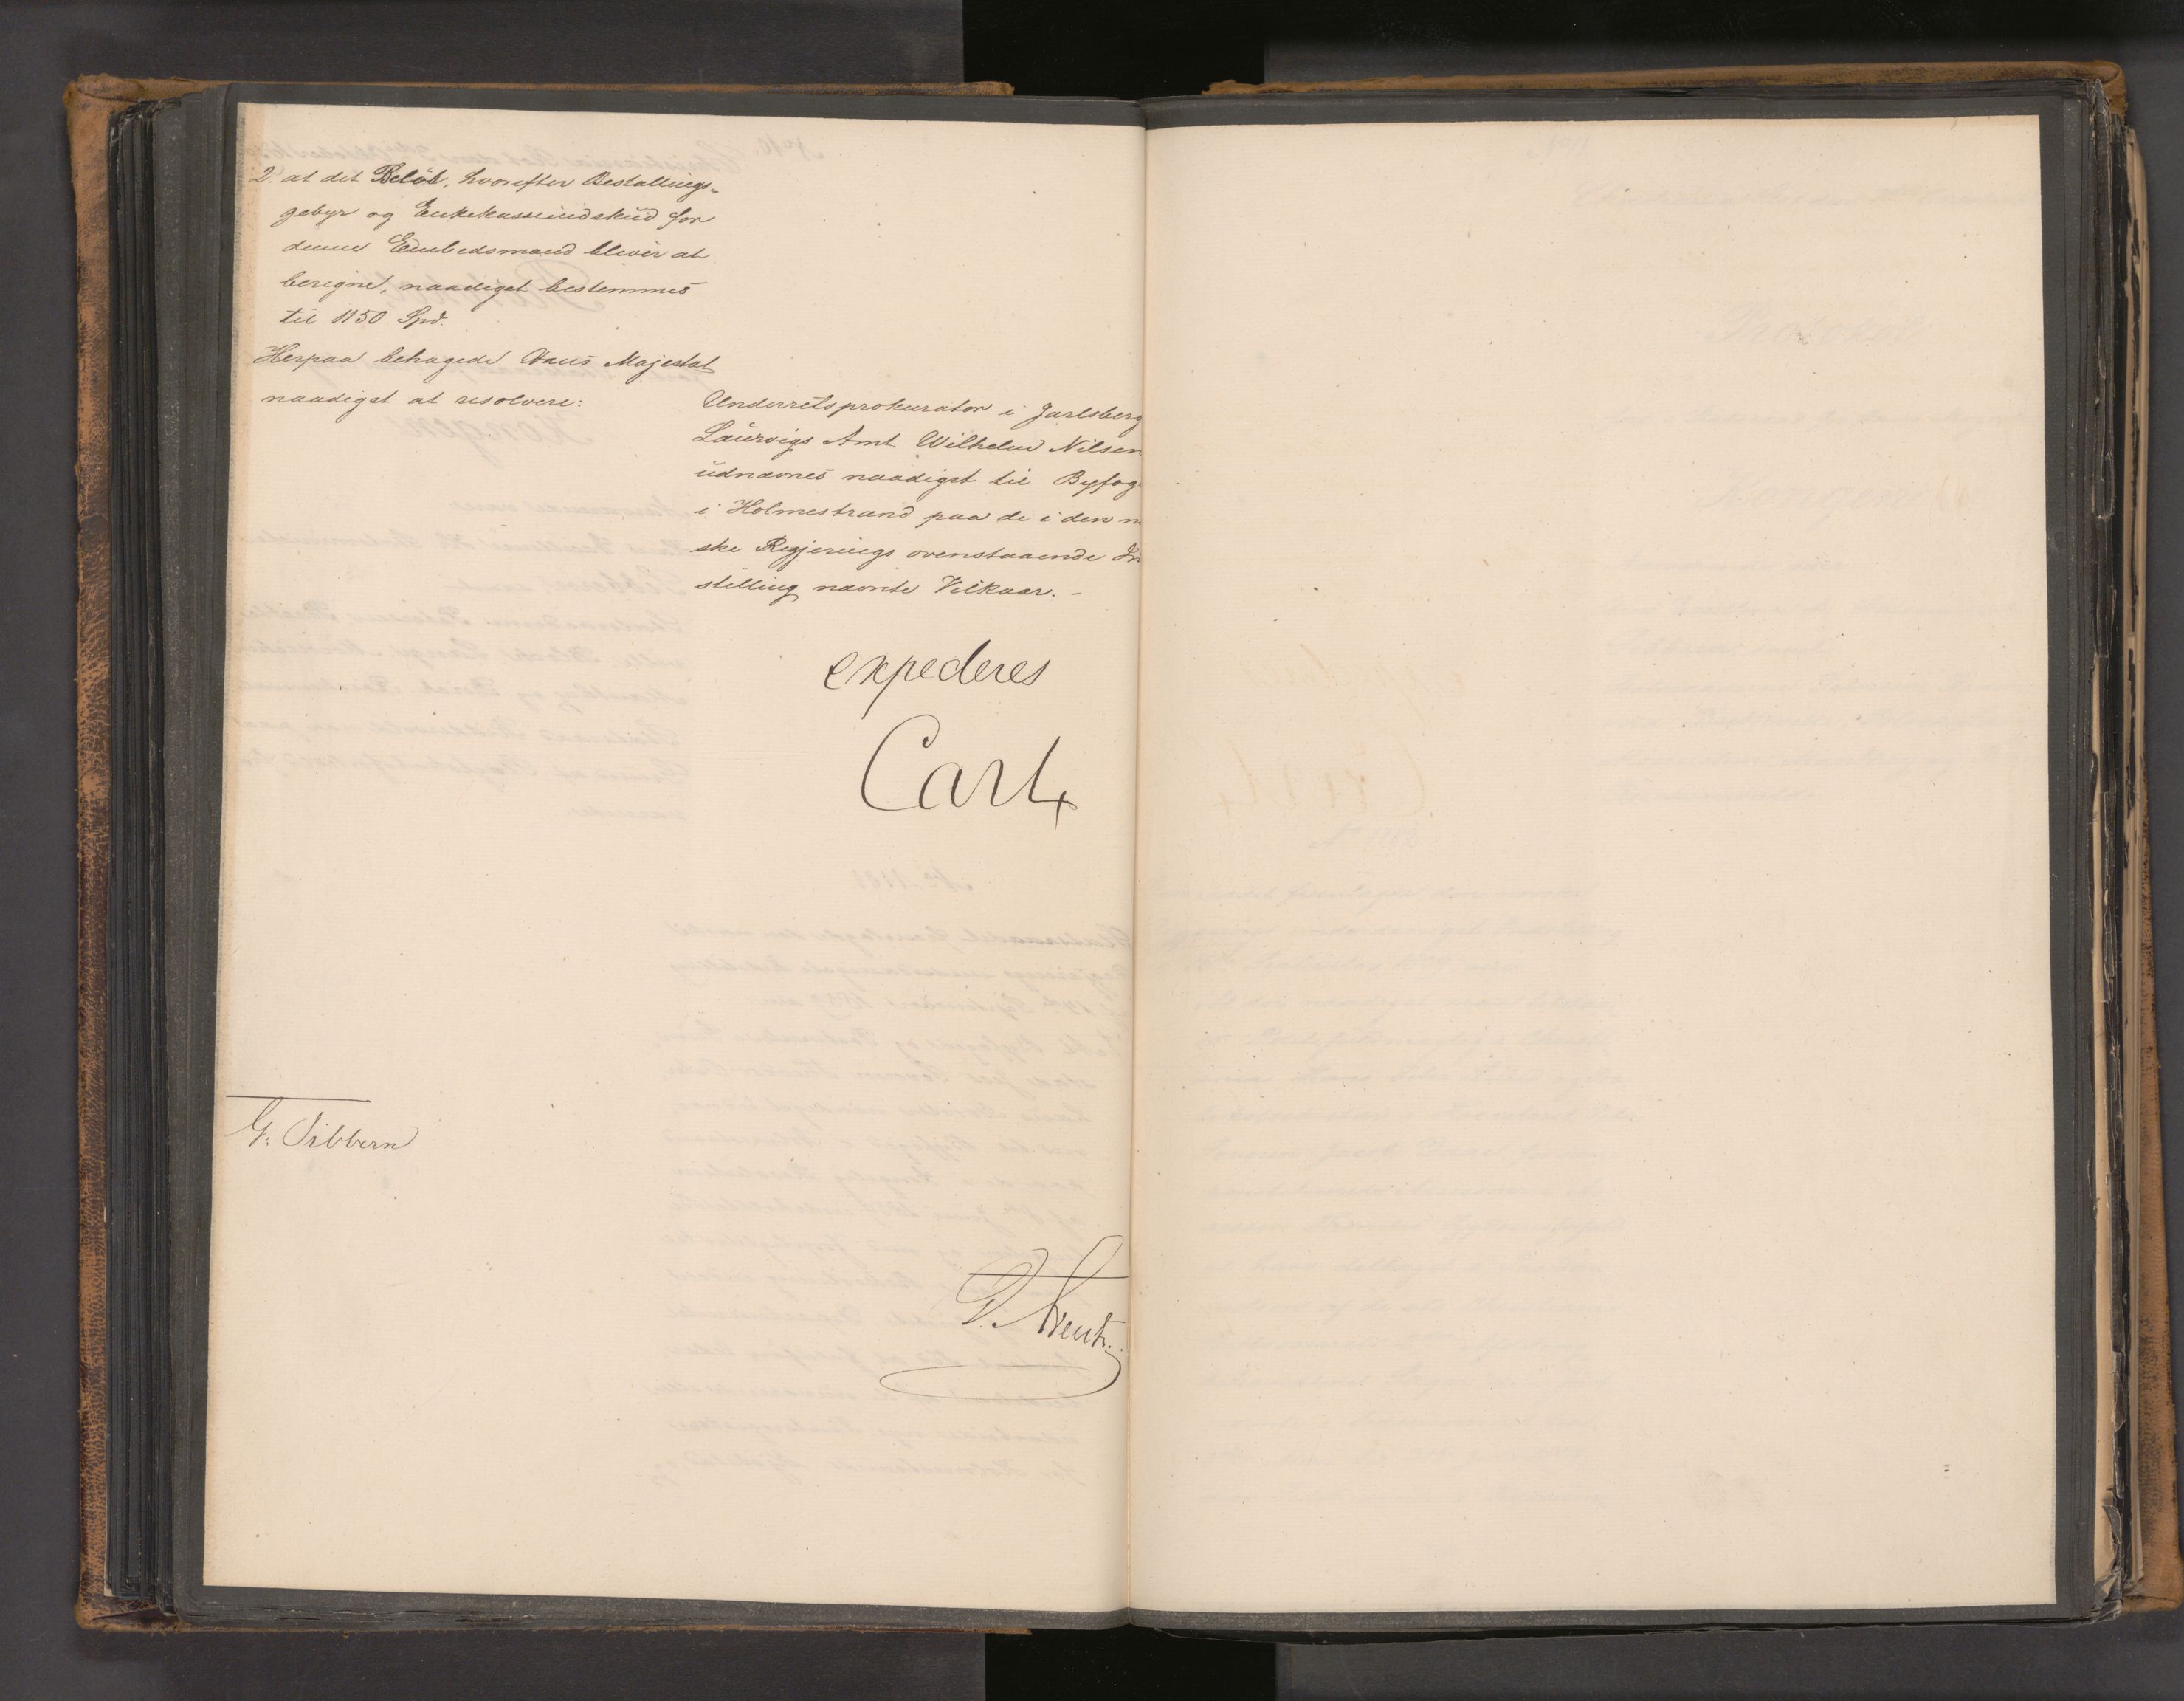 2. at det Beløb, hvorefter Bestallings-
gebyr og Enkekasseindskud for
denne Embedsmand bliver at
beregne, naadigst bestemmes
til 1150 Spd.
Herpaa behagede Hans Majestæt
naadigst at resolvere:
Underretsprokurator i Jarlsberg
Laurvigs Amt Wilhelm Nilsen
udnævnes naadigst til Byfog
i Holmestrand paa de i den n
ske Regjerings ovenstaaende In
stilling nævnte Vilkaar. -
expederes
Carl
G. Sibbern